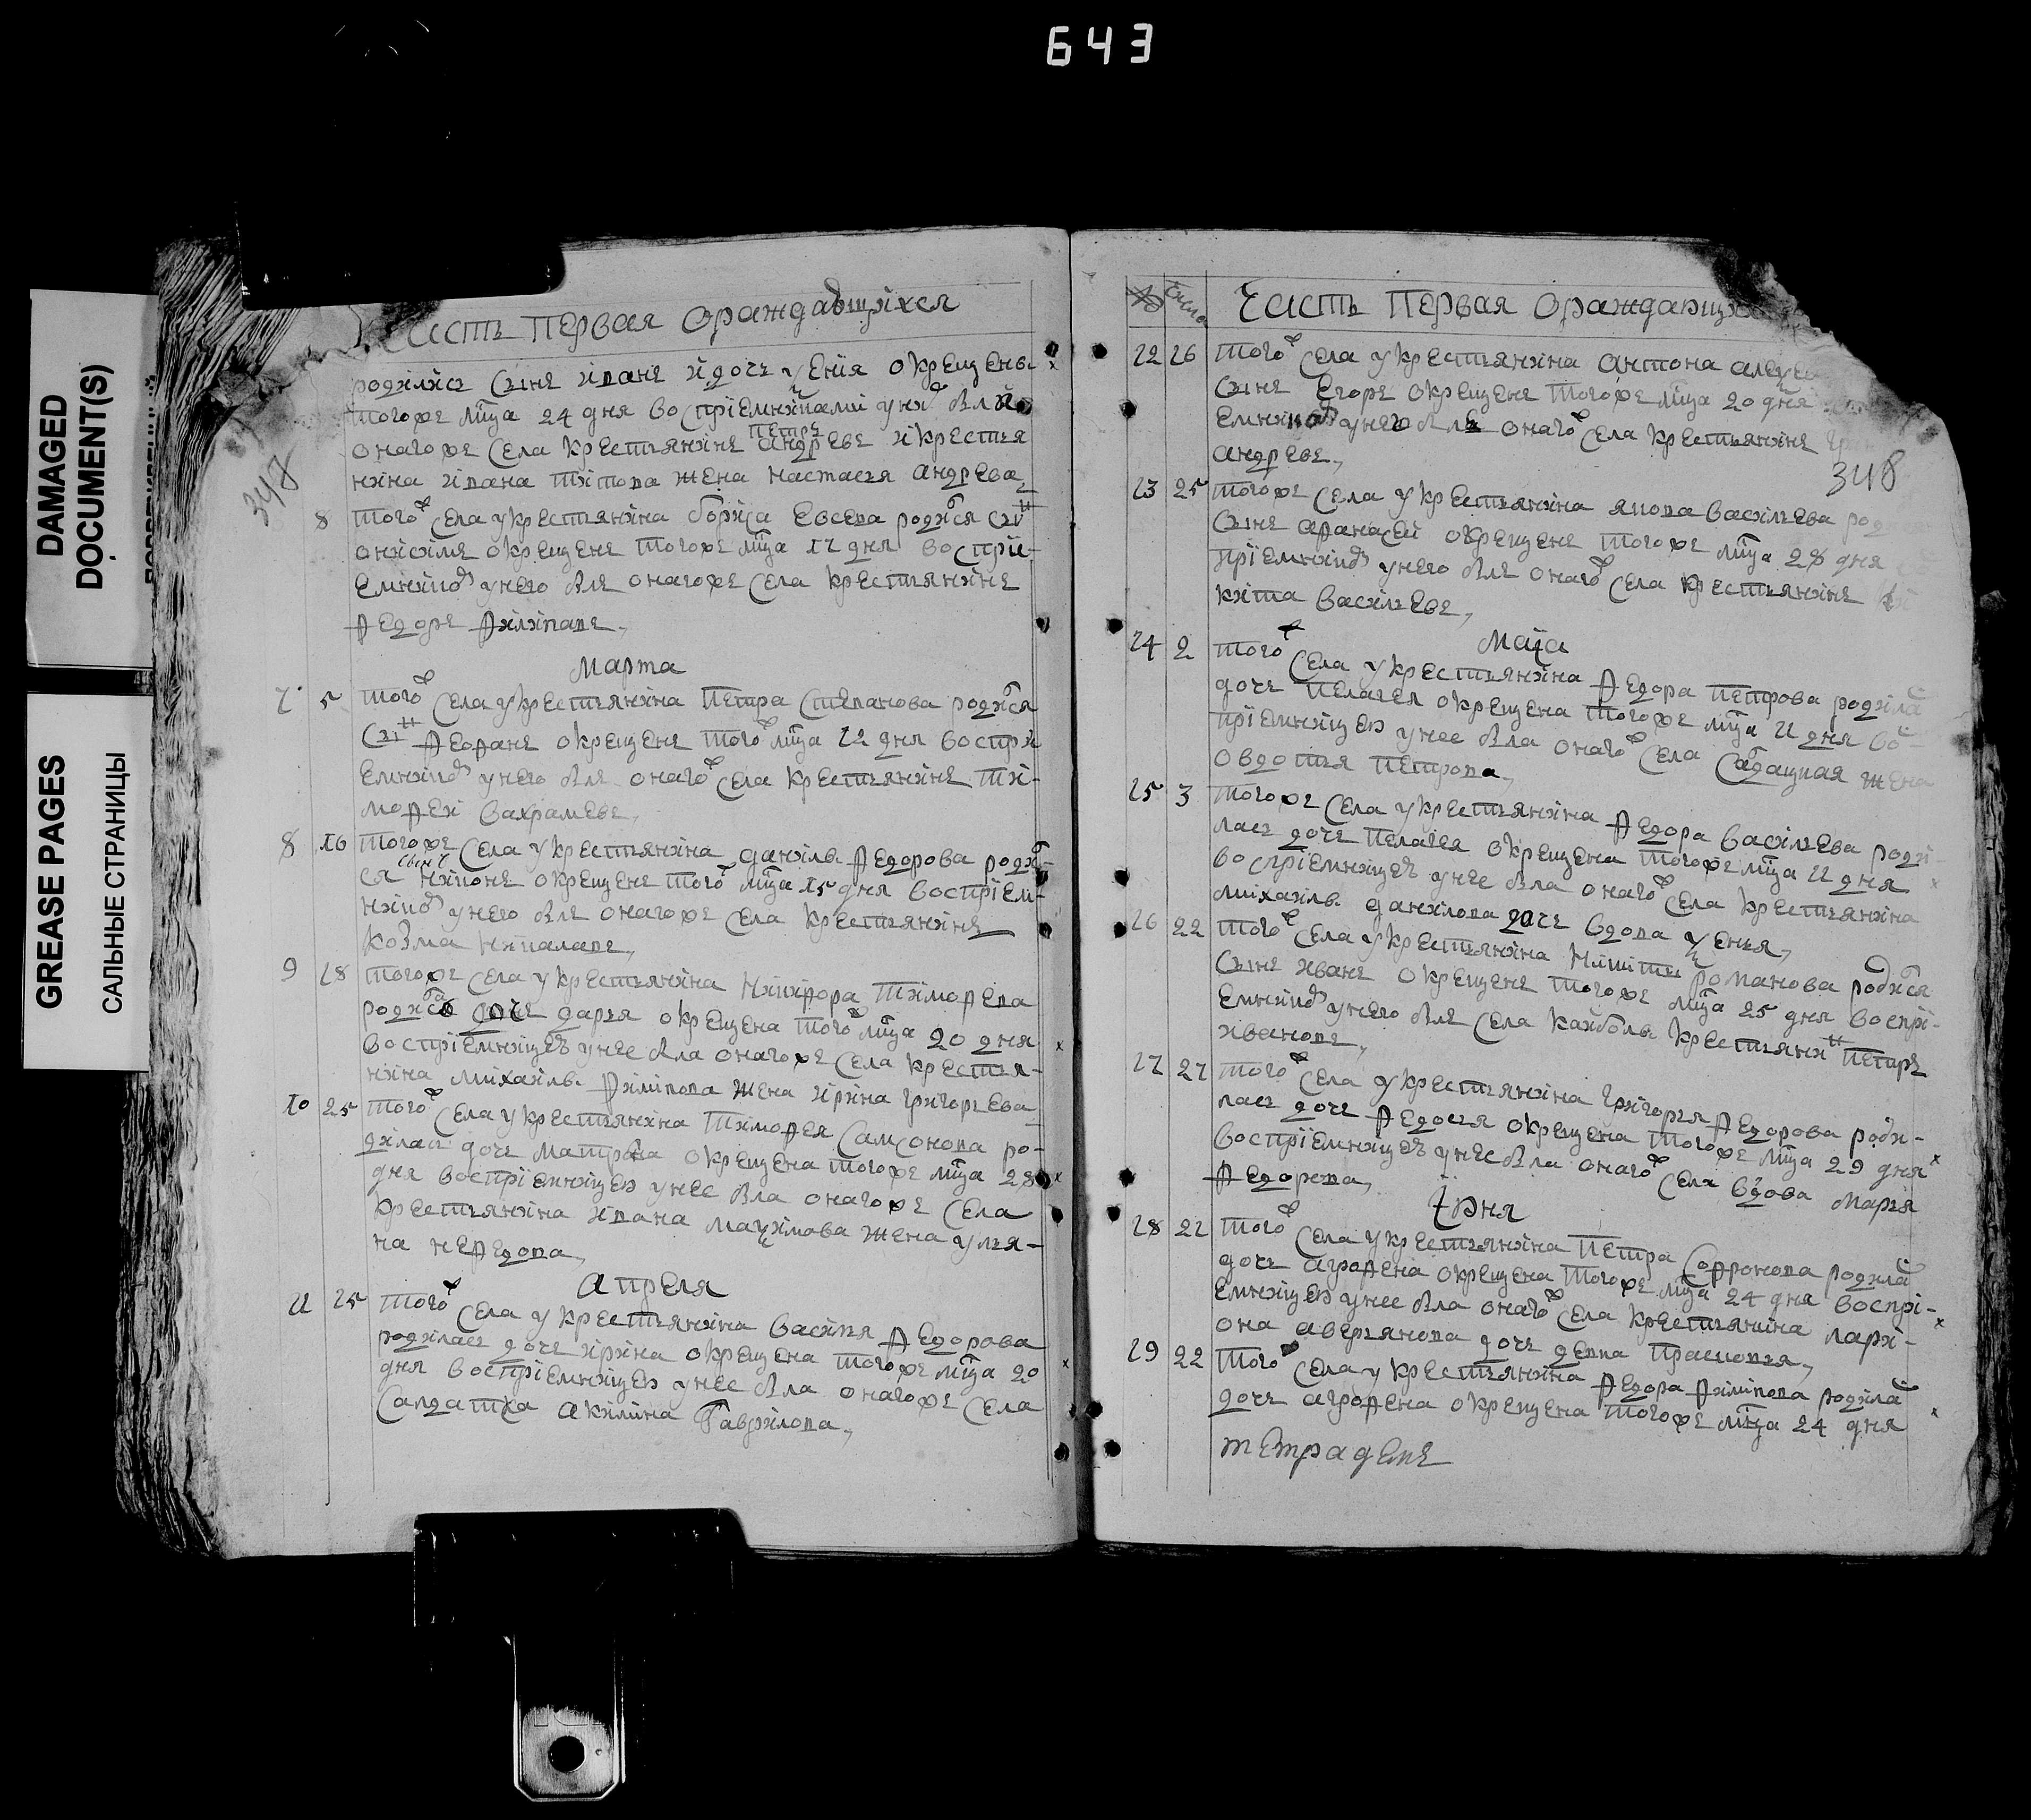 643
DAMAGED
DOCUMENT(S)
GREASE PAGES
САЛЬНЫЕ СТРАНИЦЫ
348
часть первая ораждающихся
родились сынъ иванъ идочь ксения окрещены
тогоже мца 24 дня восприемниками у них были
онагоже села крестьянинъ петръ андревъ икрестья
нина ивана титова жена настасья андрева
8 того ж села укрестьянина бориса евсева родился сын
онисимъ окрещенъ тогоже мца 12 дня воспри-
емником унего былъ онагоже села крестьянинъ
федоръ филиповъ
марта
7 5 того ж села укрестьянина петра степанова родился
сын окрещенъ того ж мца 12 дня воспри
емником унего былъ онаго ж села крестьянинъ ти-
мофеи вахрамевъ
8 10 тогоже села укрестьянина данилы федорова родил-
ся сынъ никонъ окрещенъ того ж мца 15 дня восприем-
ником унего былъ онагоже села крестьянинъ
козма
9 18 тогоже села укрестьянина никифора тимофева
дочь дарья окрещена того ж мца 20 дня
восприемницею унее была онагоже села крестья-
нина михаилы филипова жена ирина григорьева
10 25 того ж села укрестьянина тимофея самсонова ро-
дилась дочь матрона окрещена тогоже мца 28
дня восприемницею унее была онагоже села
крестьянина ивана максимова жена улья-
на нефедова
апреля
11 15 того ж села у крестьянина василья федорова
родилась дочь ирина окрещена тогоже мца 20
дня восприемницею унее была онагоже села
салдатка акилина гаврилова
часть первая ораждающих
12 16 того ж села укрестьянина антона
сынъ егоръ окрещенъ тогоже мца 20 дня
емником унего былъ онаго ж села крестьянинъ
андревъ
348
13 25 тогоже села укрестьянина якова васильева род
сынъ афанасеи окрещенъ тогоже мца 28 дня
приемником унего былъ онаго ж села крестьянинъ
кита васильевъ
маиа
14 2 того ж села укрестьянина федора петрова родила
дочь пелагея окрещена тогоже мца 11 дня во
приемницею унее была онаго ж села салдацкая жена
овдотья петрова
15 3 тогоже села укрестьянина федора васильева роди-
лась дочь пелагея окрещена тогоже мца 11 дня
восприемницею унее была онаго ж села крестьянина
михаилы данилова дочь вдова ксенья
16 22 того ж села укрестьянина никиты романова родился
сынъ иванъ окрещенъ тогоже мца 25 дня воспри-
емником унего былъ села каиболы крестьянин петръ
ивановъ
17 27 того ж села укрестьянина григорья федорова роди-
лась дочь федосья окрещена тогоже мца 29 дня
восприемницею унее была онаго ж села вдова марья
федорова
июня
18 21 того ж села укрестьянина петра софронова родила
дочь аграфена окрещена тогоже мца 24 дня воспри-
емницею унее была онаго ж села крестьянина лари-
она аверьянова дочь девка прасковья
19 22 того ж села укрестьянина федора филипова родила
дочь аграфена окрещена тогоже мца 24 дня